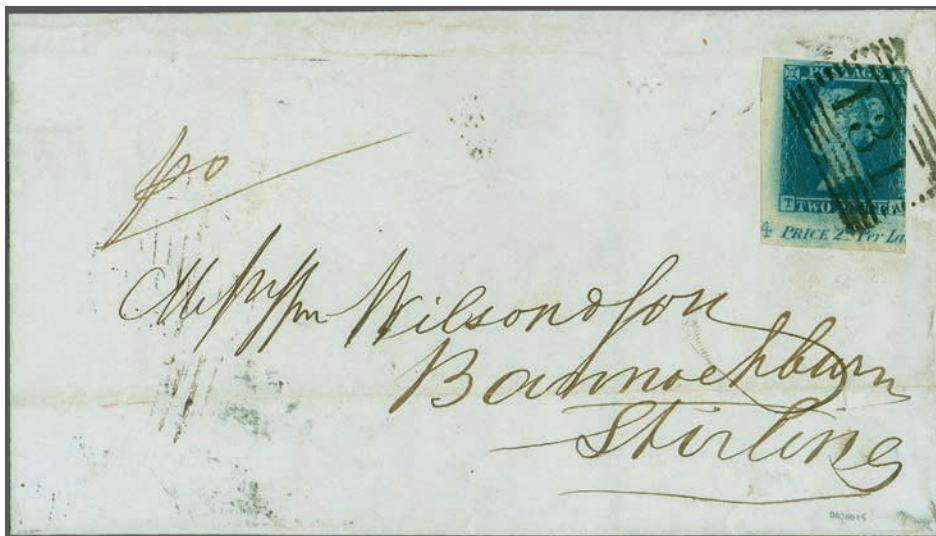 POSTAGE
181
T TWO A
4 PRICE 2 Per La
Messrs Wm Wilson & Son
Bannockburn
Stirling